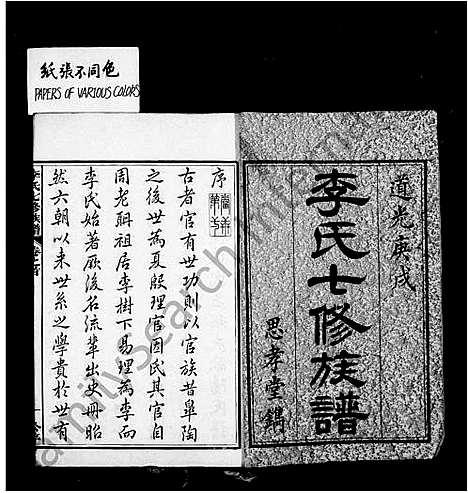 紙張不同色
PAPERS OF VARIOUS COLORS
道光庚戌
李氏七修族譜
思孝堂鐫
序
古者官有世功則以官族昔皐陶
之後世為夏殷理官因氏其官自
周老聃祖居李樹下易理為李而
李氏始著厥後名流輩出史冊昭
然六朝以来世系之學貴於世有
李氏七修族譜 卷首
familysearch.intern